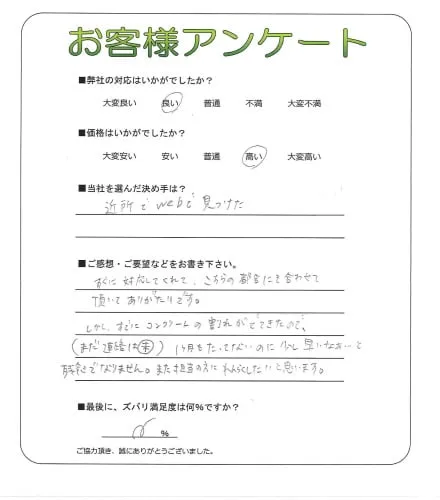 お客様アンケート
■弊社の対応はいかがでしたか？
大変良い 良い 普通 不満 大変不満
■価格はいかがでしたか？
大変安い 安い 普通 高い 大変高い
■当社を選んだ決め手は？
近所で webで 見つけた
■ご感想・ご要望などをお書き下さい。
すぐに 対応してくれて、こちらの都合にも合わせて
頂いて ありがたいです。
しかし、すでに コンクリートの 割れが でてきたので、
(まだ 連絡は 未) 1ヶ月もたってないのに 少し 早いなあ
なりません。また担当の方に れんらくしたいと思います。
■最後に、ズバリ満足度は何%ですか？
%
ご協力頂き、誠にありがとうございました。